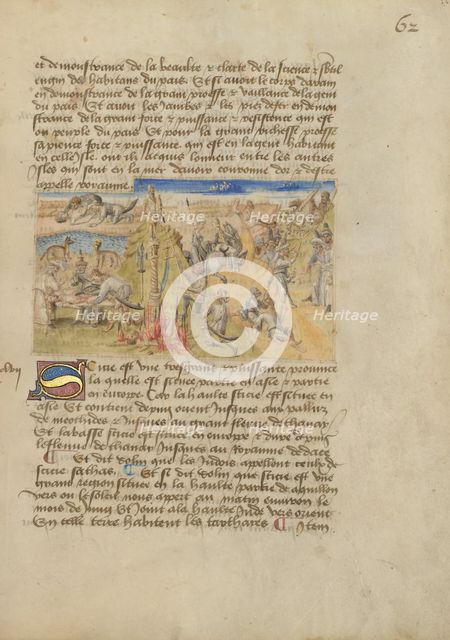 62
et demonstrance de la beaulte & clarte de la science & sbtil
engin des habitans du pais. Et si avoit le corps darain
en demonstrance de la grant proesse & vaillance de la gent
du pais Et avoit les jambes & les piez de fer en demon
strance de la grant force & puissance & resistence qui est
ou peuple du pais Et pour la grant richesse proesse
sapience force & puissance qui est en la gent habitant
en celle isle ont ilz acquis lonneur entre les autres
isles qui sont en la mer davoir couronne dor & destre
appelle royaume
Heritage
Heritage
Heritage
Heritage
Heritage
Sicie est une tresgrant & puissant prouince
la quelle est situee partie en asie & partie
en europe Car la haulte sicie est situee en
asie Et contient depuis orient jusques aux palluz
de meothides & jusques au grant fleuve de thanay
Et la basse sicie est situee en europe & dure depuis
le fleuve de thanay jusques au royaume de dace
Et dit solin que les indois appellent ceulx de
sicie sathas Et si dit solin que sicie est une
grant region situee en la haulte partie de aquilon
vers ou le soleil nous appert au matin environ le
mois de juing Et joint a la haulte inde vers orient
En celle terre habitent les tarthares Item